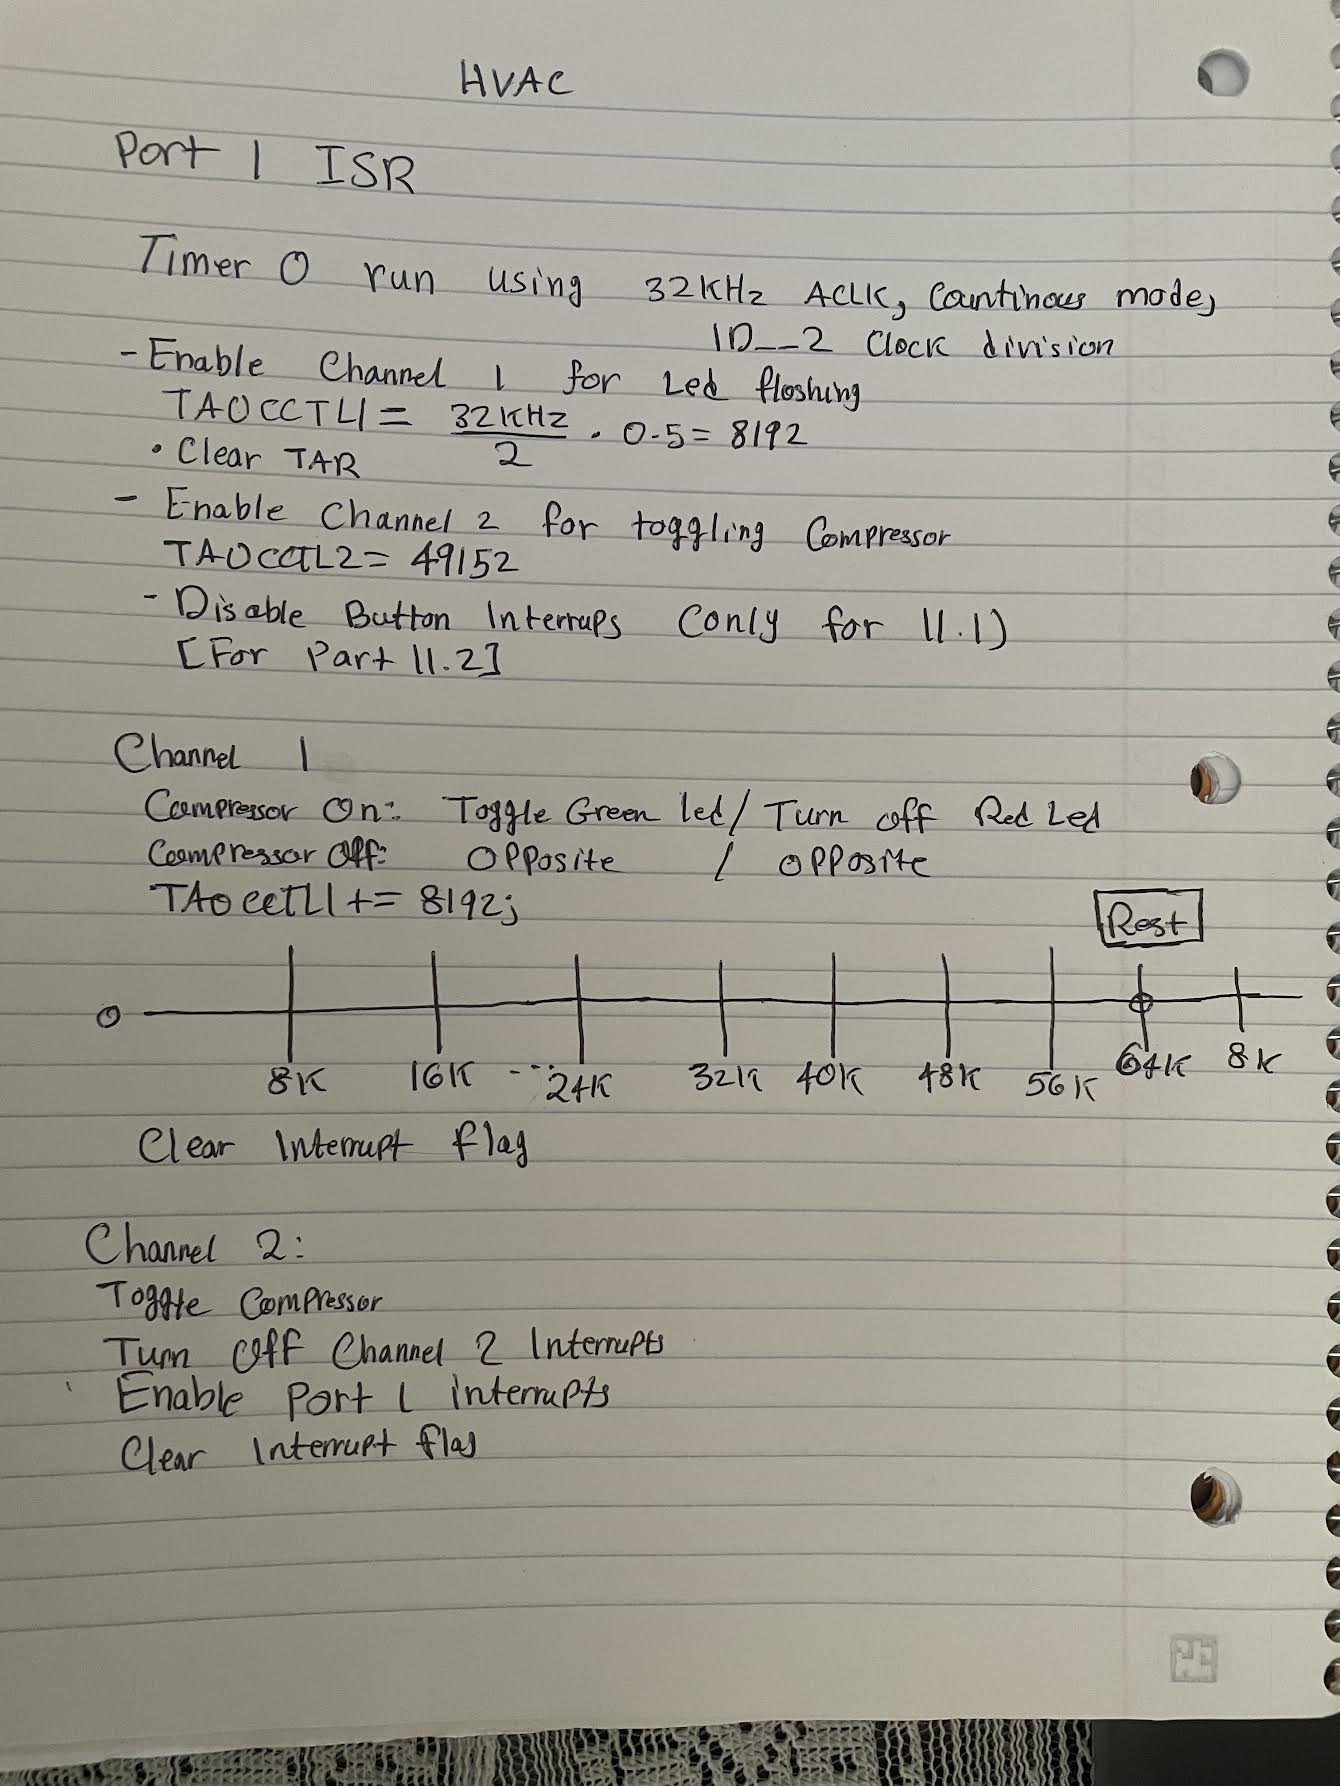 HVAC
Port 1 ISR
Timer 0 run using 32KHz ACLK, Countinous mode,
ID__2 Clock division
- Enable Channel 1 for Led flashing
TA0CCTL1 = 32KHz / 2 · 0.5 = 8192
• Clear TAR
- Enable Channel 2 for toggling Compressor
TA0CCTL2 = 49152
- Disable Button Interrups (only for 11.1)
[For Part 11.2]
Channel 1
Compressor On: Toggle Green led / Turn off Red Led
Compressor Off: Opposite / opposite
TA0CCTL1 += 8192;
Rest
0
8K 16K --- 24K 32K 40K 48K 56K 64K 8K
Clear Interrupt flag
Channel 2:
Toggle Compressor
Turn Off Channel 2 Interrupts
Enable Port 1 interrupts
Clear Interrupt flag